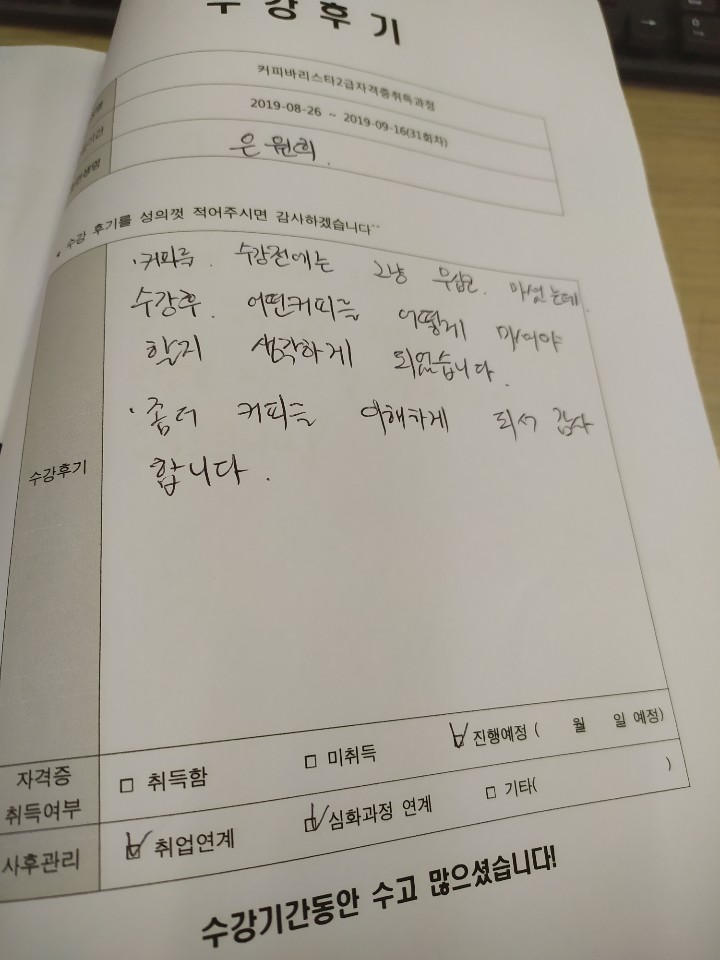 수강후기
커피바리스타2급자격증취득과정
2019-08-26 ~ 2019-09-16(31회차)
은원희.
* 수강 후기를 성의껏 적어주시면 감사하겠습니다^^
수강후기
·커피를. 수강전에는 그냥 무심코. 마셨는데.
수강후. 어떤커피를 어떻게 마셔야
할지 생각하게 되었습니다.
·좀더 커피를 이해하게 되서 감사
합니다.
자격증
취득여부
□ 취득함 □ 미취득 ☑ 진행예정 ( 월 일 예정)
사후관리 ☑ 취업연계 ☑ 심화과정 연계 □ 기타( )
수강기간동안 수고 많으셨습니다!